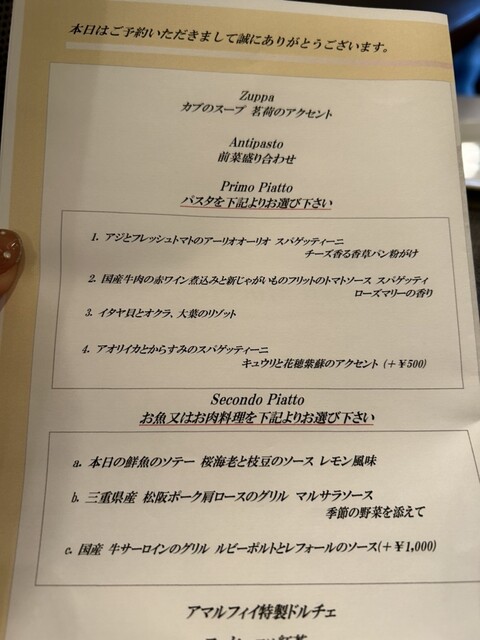 本日はご予約いただきまして誠にありがとうございます。
Zuppa
カブのスープ 茗荷のアクセント
Antipasto
前菜盛り合わせ
Primo Piatto
パスタを下記よりお選び下さい
1. アジとフレッシュトマトのアーリオオーリオ スパゲッティーニ
チーズ香る香草パン粉がけ
2. 国産牛肉の赤ワイン煮込みと新じゃがいものフリットのトマトソース スパゲッティ
ローズマリーの香り
3. イタヤ貝とオクラ、大葉のリゾット
4. アオリイカとからすみのスパゲッティーニ
キュウリと花穂紫蘇のアクセント (+¥500)
Secondo Piatto
お魚又はお肉料理を下記よりお選び下さい
a. 本日の鮮魚のソテー 桜海老と枝豆のソース レモン風味
b. 三重県産 松阪ポーク肩ロースのグリル マルサラソース
季節の野菜を添えて
c. 国産 牛サーロインのグリル ルビーポルトとレフォールのソース(+¥1,000)
アマルフィイ特製ドルチェ